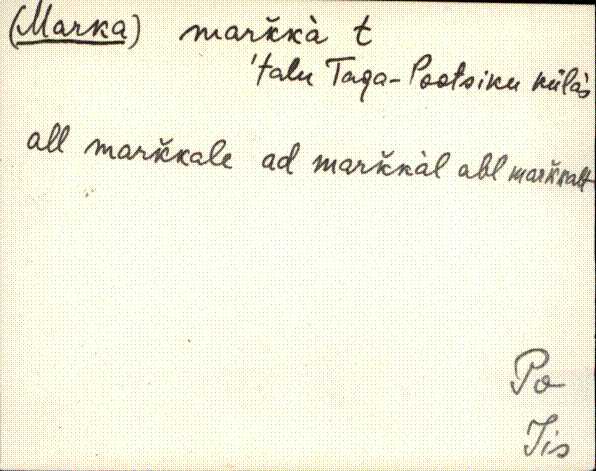 (Marka) marǩkà t
'talu Taga-Pootsiku külas
all marǩkale ad marǩkàl abl marǩkalt
Po
Jis